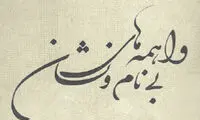 واهمه‌های
بی نام و نشان